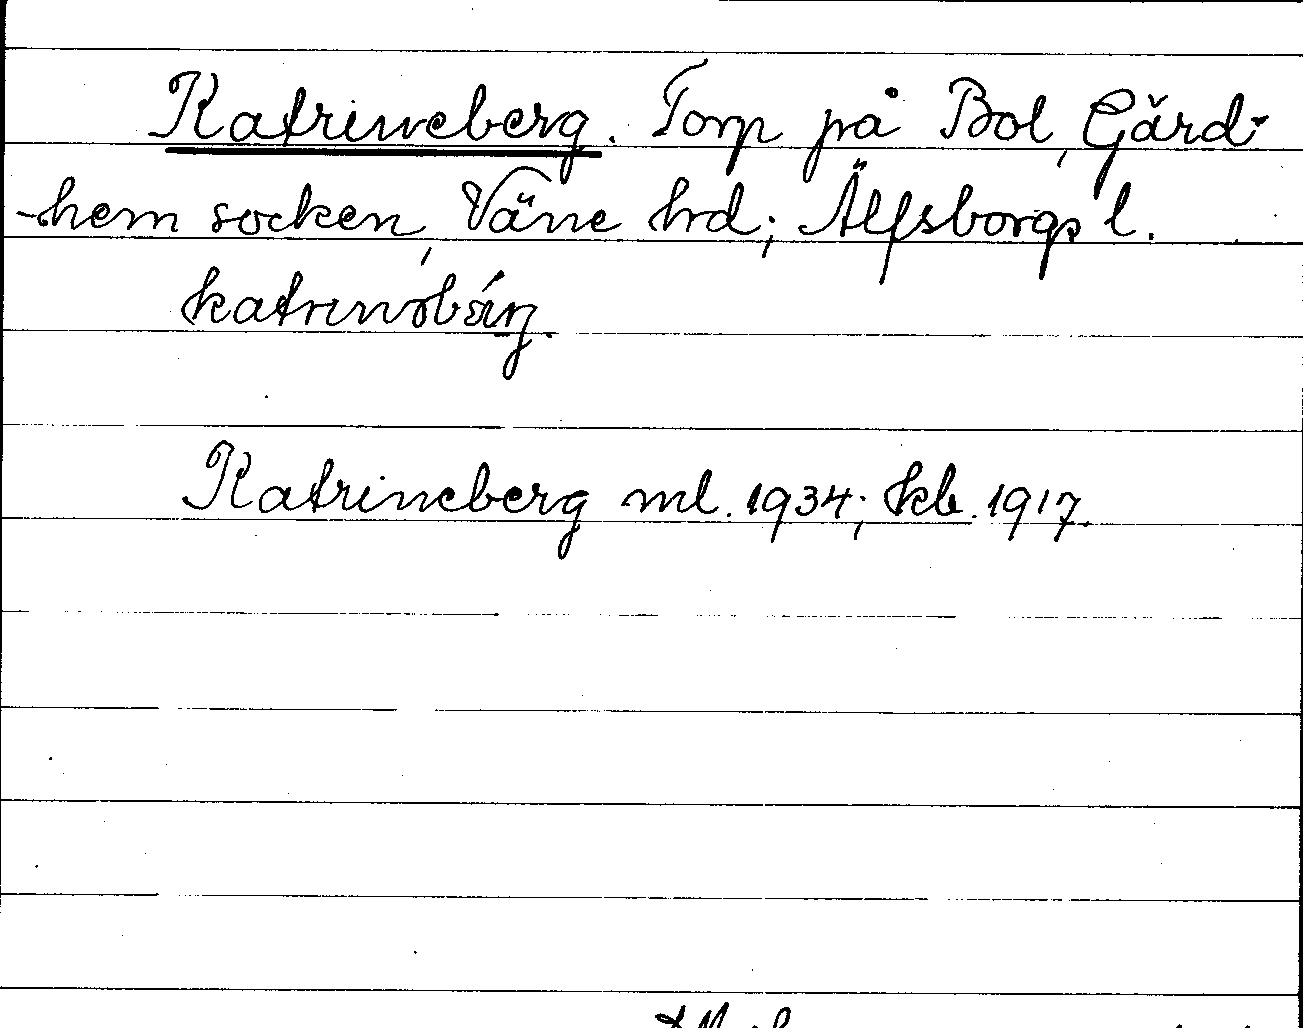 Katrineberg. Torp på Bol, Gärd-
-hem socken, Väne hrd; Älfsborgs l.
Katrineberg ml. 1934; kb. 1917.